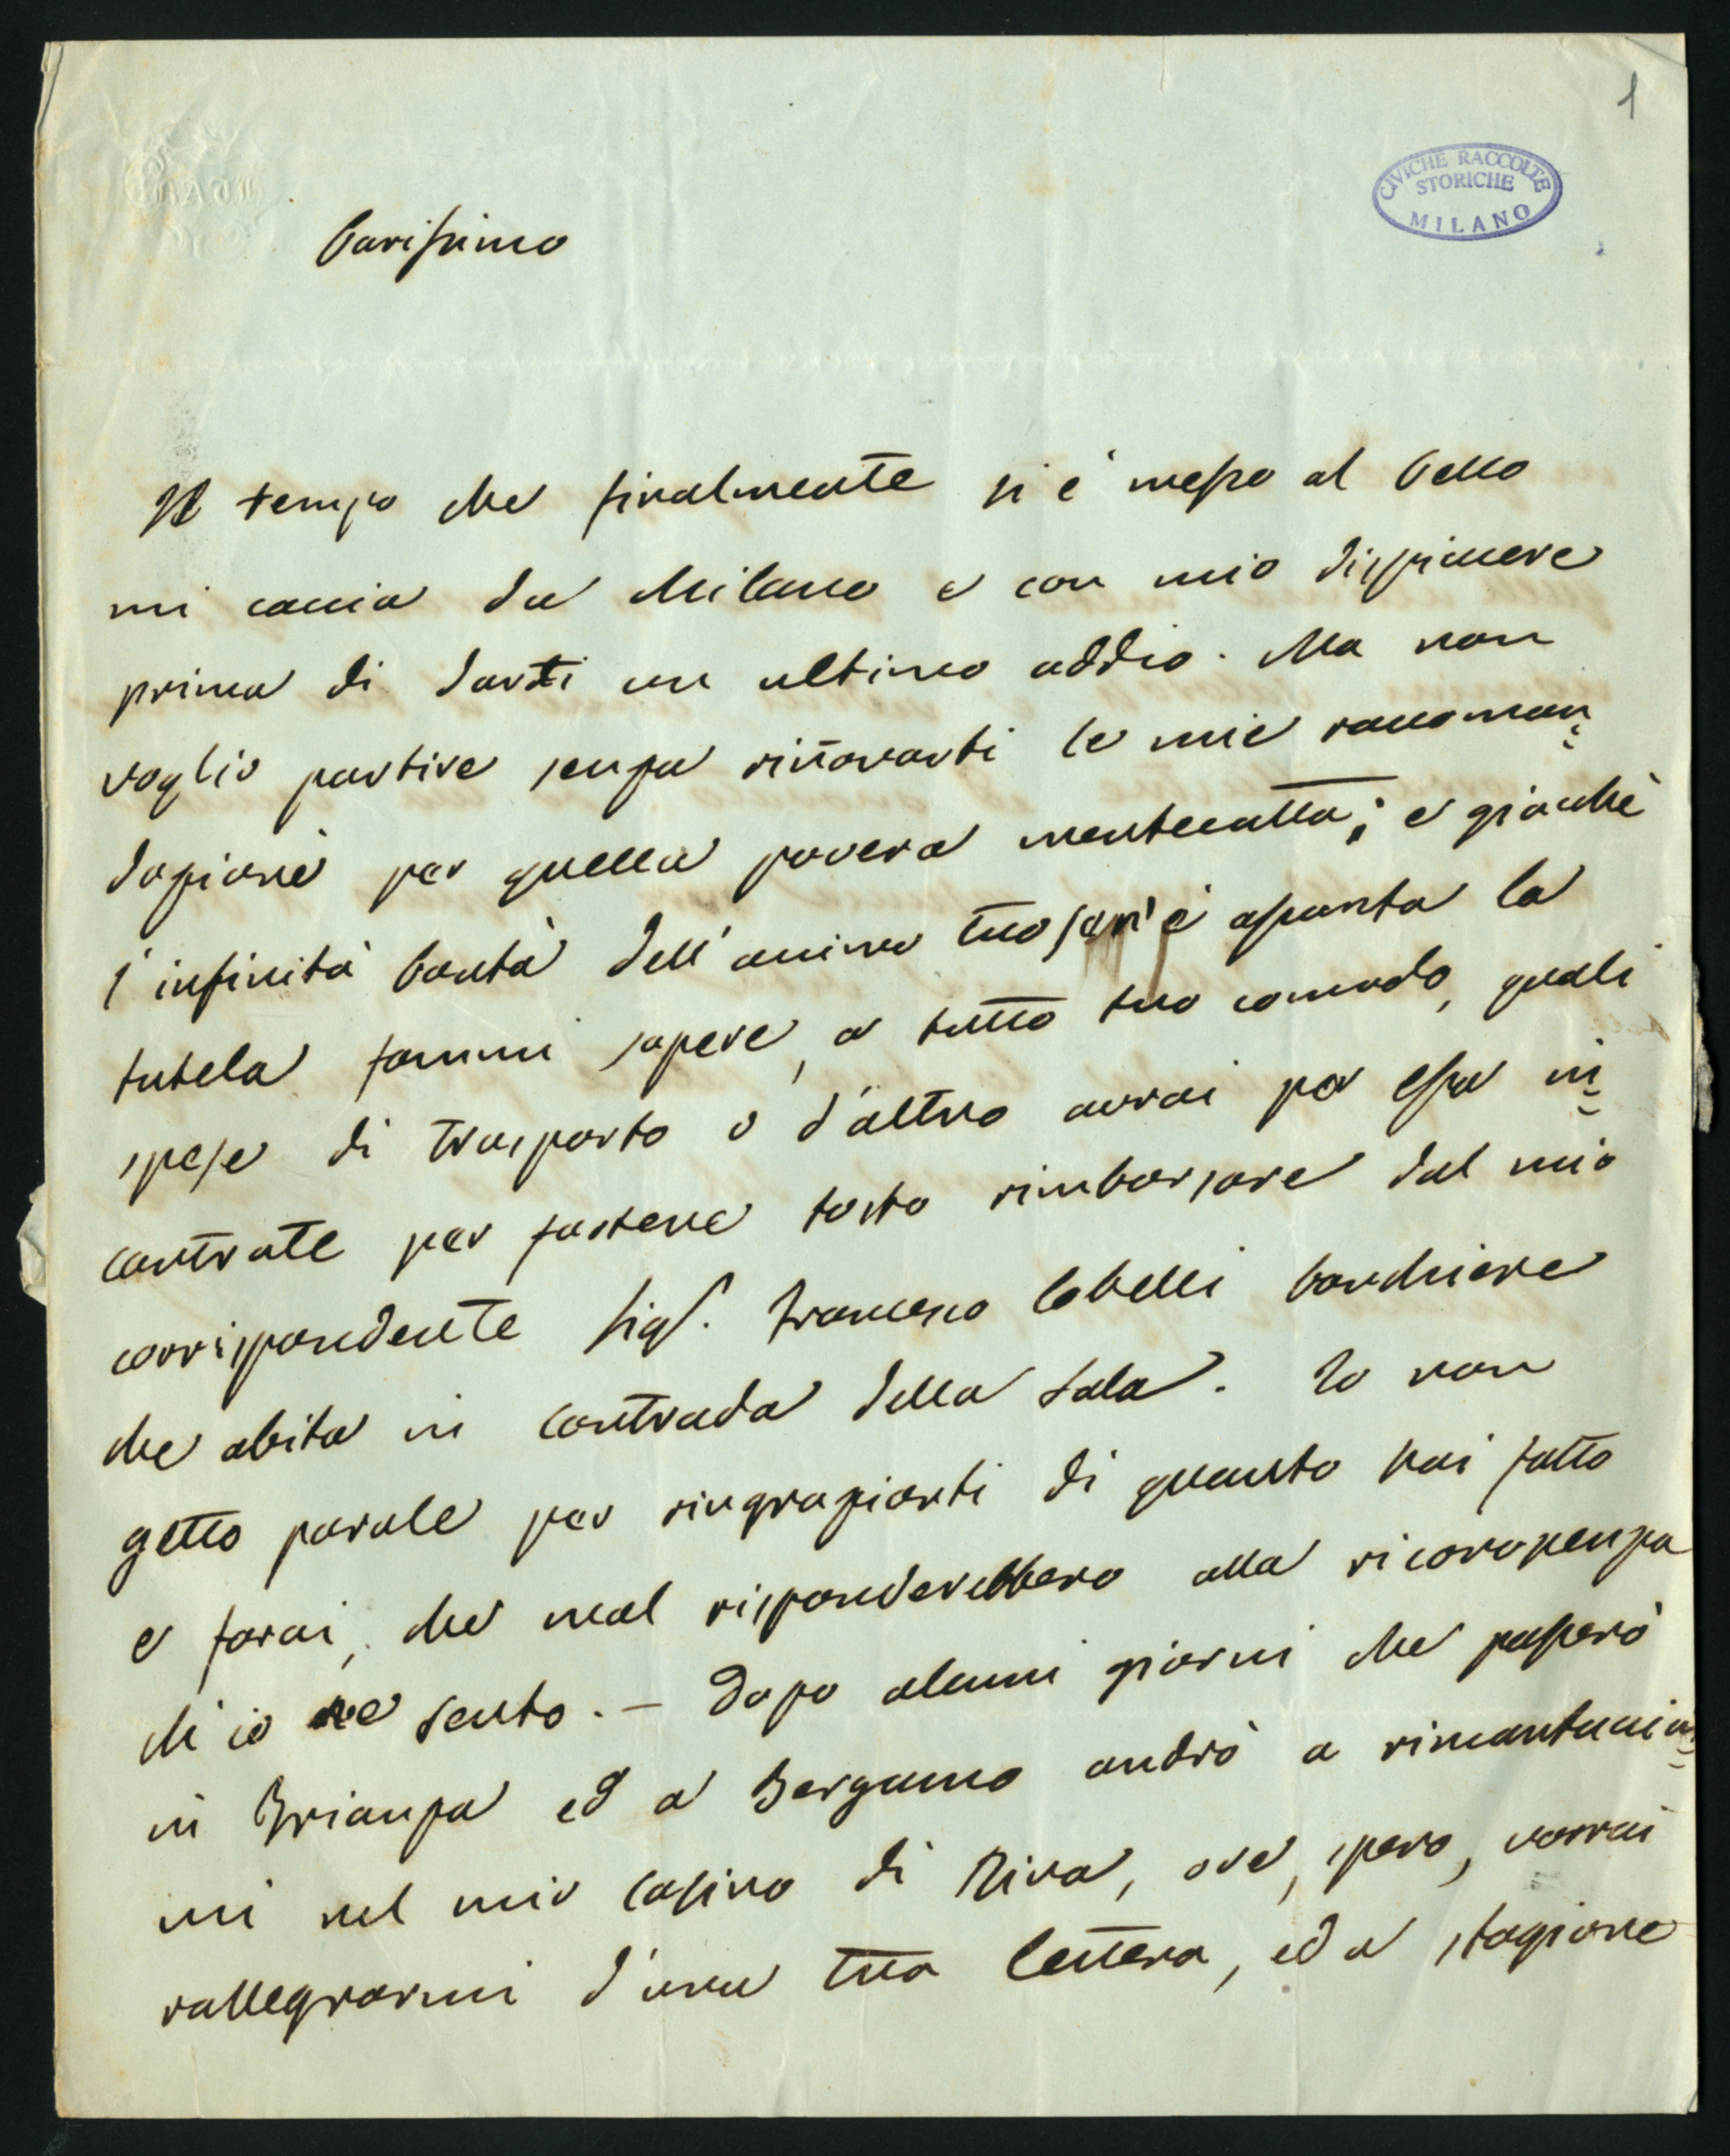 1
CIVICHE RACCOLTE
STORICHE
MILANO
Carissimo
Il tempo che finalmente si è messo al bello
mi caccia da Milano e con mio dispiacere
prima di darti un ultimo addio. Ma non
voglio partire senza rinovarti le mie raccoman=
dazioni per quella povera mentecatta; e giacchè
l'infinita bontà dell'animo tuo se n'è assunta la
tutela fammi sapere, a tutto tuo comodo, quali
spese di trasporto o d'altro avrai per essa in=
contrate per fartene tosto rimborsare dal mio
corrispondente Sigr. Francesco banchiere
che abita in contrada della Sala. Io non
getto parole per ringraziarti di quanto hai fatto
e farai, che mal risponderebbero alla riconoscenza
ch'io ne sento. - Dopo alcuni giorni che passerò
in Brianza ed a Bergamo andrò a rimantanar=
mi nel mio casino di Riva, ove, spero, vorrai
rallegrarmi d'una tua lettera, ed a stagione